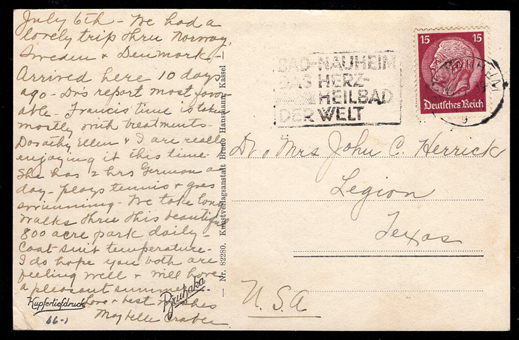 July 6th - We had a
lovely trip thru Norway,
Sweden & Denmark.
Arrived here 10 days
ago - Drs report most favor
able - Francis time is taken
mostly with treatments.
Dorothy Ellen & I are really
enjoying it this time.
She has 2 hrs German a
day - plays tennis & goes
swimming - We take long
walks thru this beautiful
800 acre park daily -
Coat suit temperature -
I do hope you both are
feeling well & will have
a pleasant summer
Love & best wishes
May Ella
Kupfertiefdruck
66-1
Bruhaka
Nr. 82280. Kunstverlagsanstalt Bruno Hansmann, Kassel
BAD-NAUHEIM
DAS HERZ-
HEILBAD
DER WELT
15 15
Deutsches Reich
Dr. & Mrs John C. Herrick
Legion
Texas
U.S.A